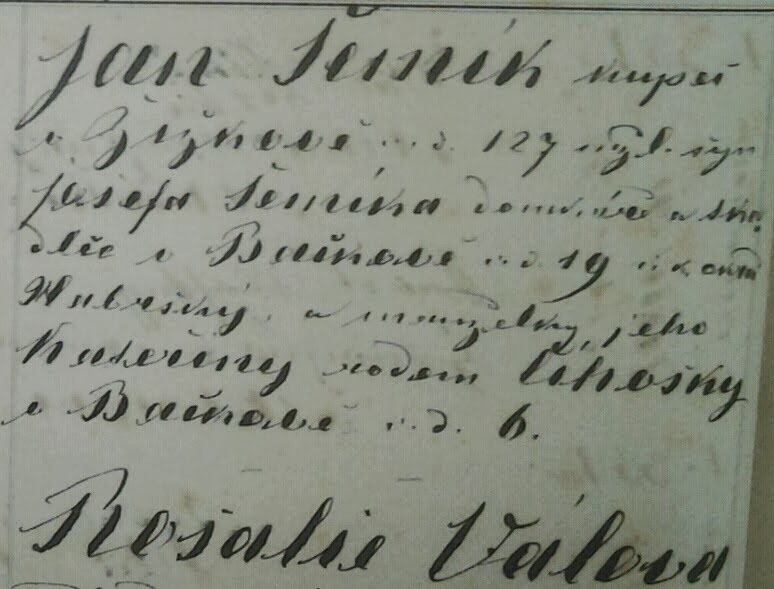 Jan Šemík kupec
v Žižkově č. d. 127 mžl. syn
Josefa Šemíka domkáře a tka-
dlce v Bačkově č. d. 19
a manželky jeho
Kateřiny rodem Číhošky
v Bačkově č. d. 6.
Rosalie Válova